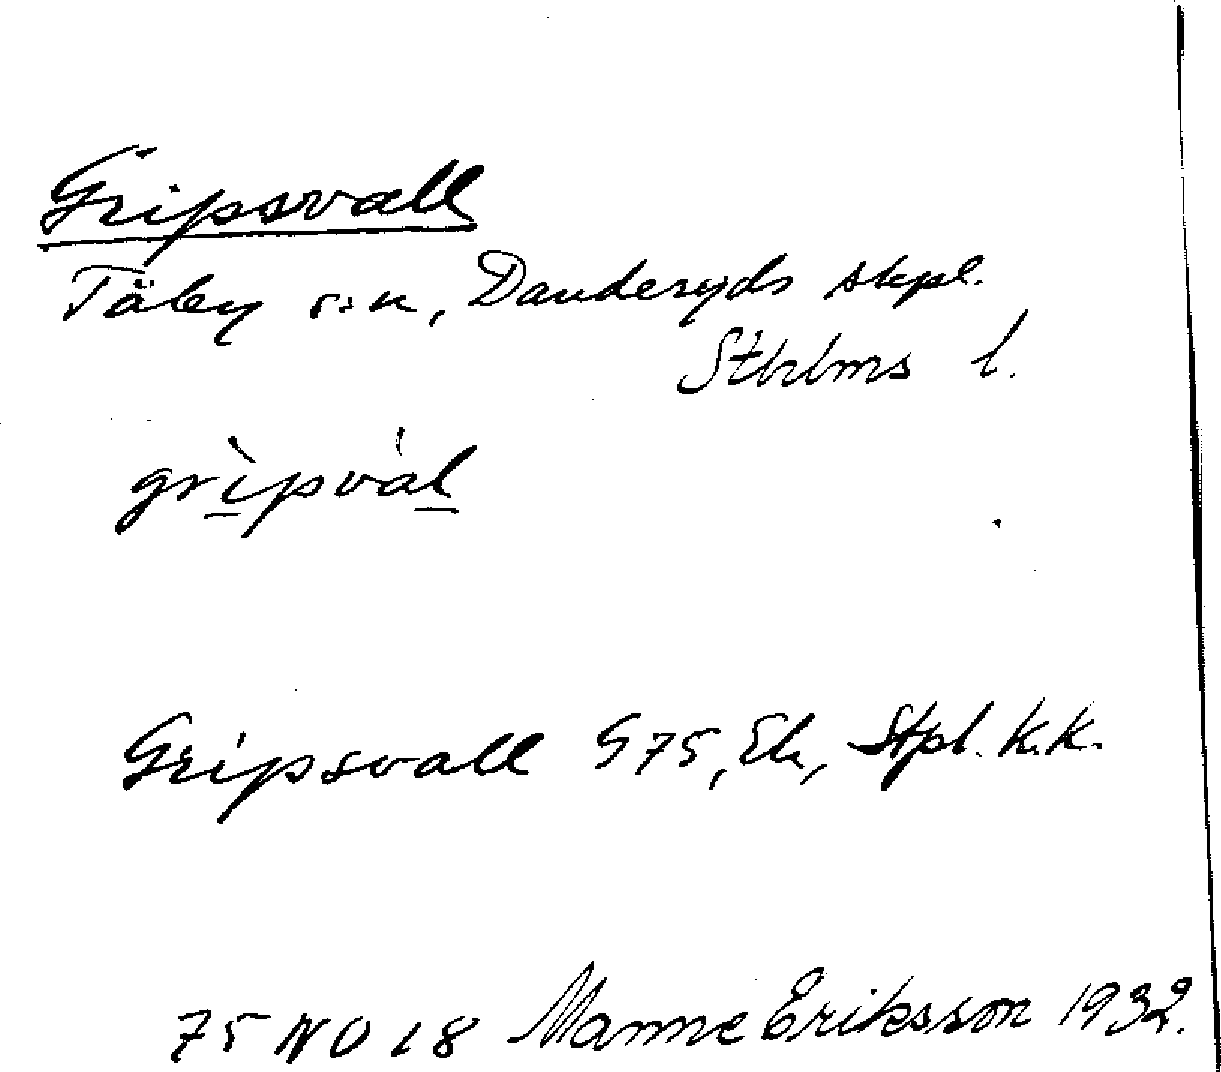 Gripsvall
Täby s:n, Danderyds skpl.
Sthlms l.
grìpvál
Gripsvall G75, Ek, Stpl. K.K.
75 NO 18 Manne Eriksson 1932.